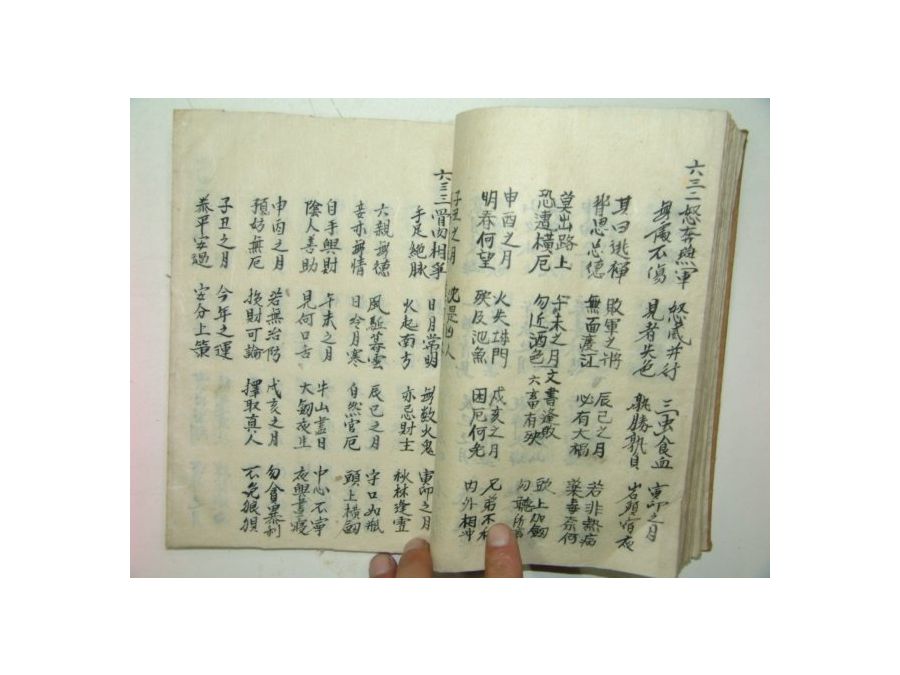 六三二 怒奔煞軍 怒威并行 三虫食血 寅卯之月
無處不傷 見者失色 孰勝孰負 岩頭宿夜
其曰逃禪 敗軍之將 辰巳之月 若非熱病
背恩忘德 無面渡江 必有大禍 藥毒奈何
莫出路上 午未之月 文書逢敗 頭上加劒
恐遭橫厄 勿近酒色 六畜有殃 勿聽所言
申酉之月 火失城門 戌亥之月 兄弟不
明春何望 殃及池魚 困厄何免 內外相冲
子丑之月
六三三 骨肉相爭 日月常明 無數火鬼 寅卯之月
手足絶脉 火起南方 亦忌財士 秋林逢
六親無德 風駈暮雲 辰巳之月 字口如瓶
妾亦無情 日冷月寒 自然官厄 頭上橫劒
自手興財 午未之月 牛山盡日 中心不寧
陰人善助 見何口舌 大劒夜生 夜興晝寢
申酉之月 若無治防 戌亥之月 勿貪暴利
預妨無厄 損財可論 擇取真人 不免狼狽
子丑之月 今年之運
恭平安過 安分上策